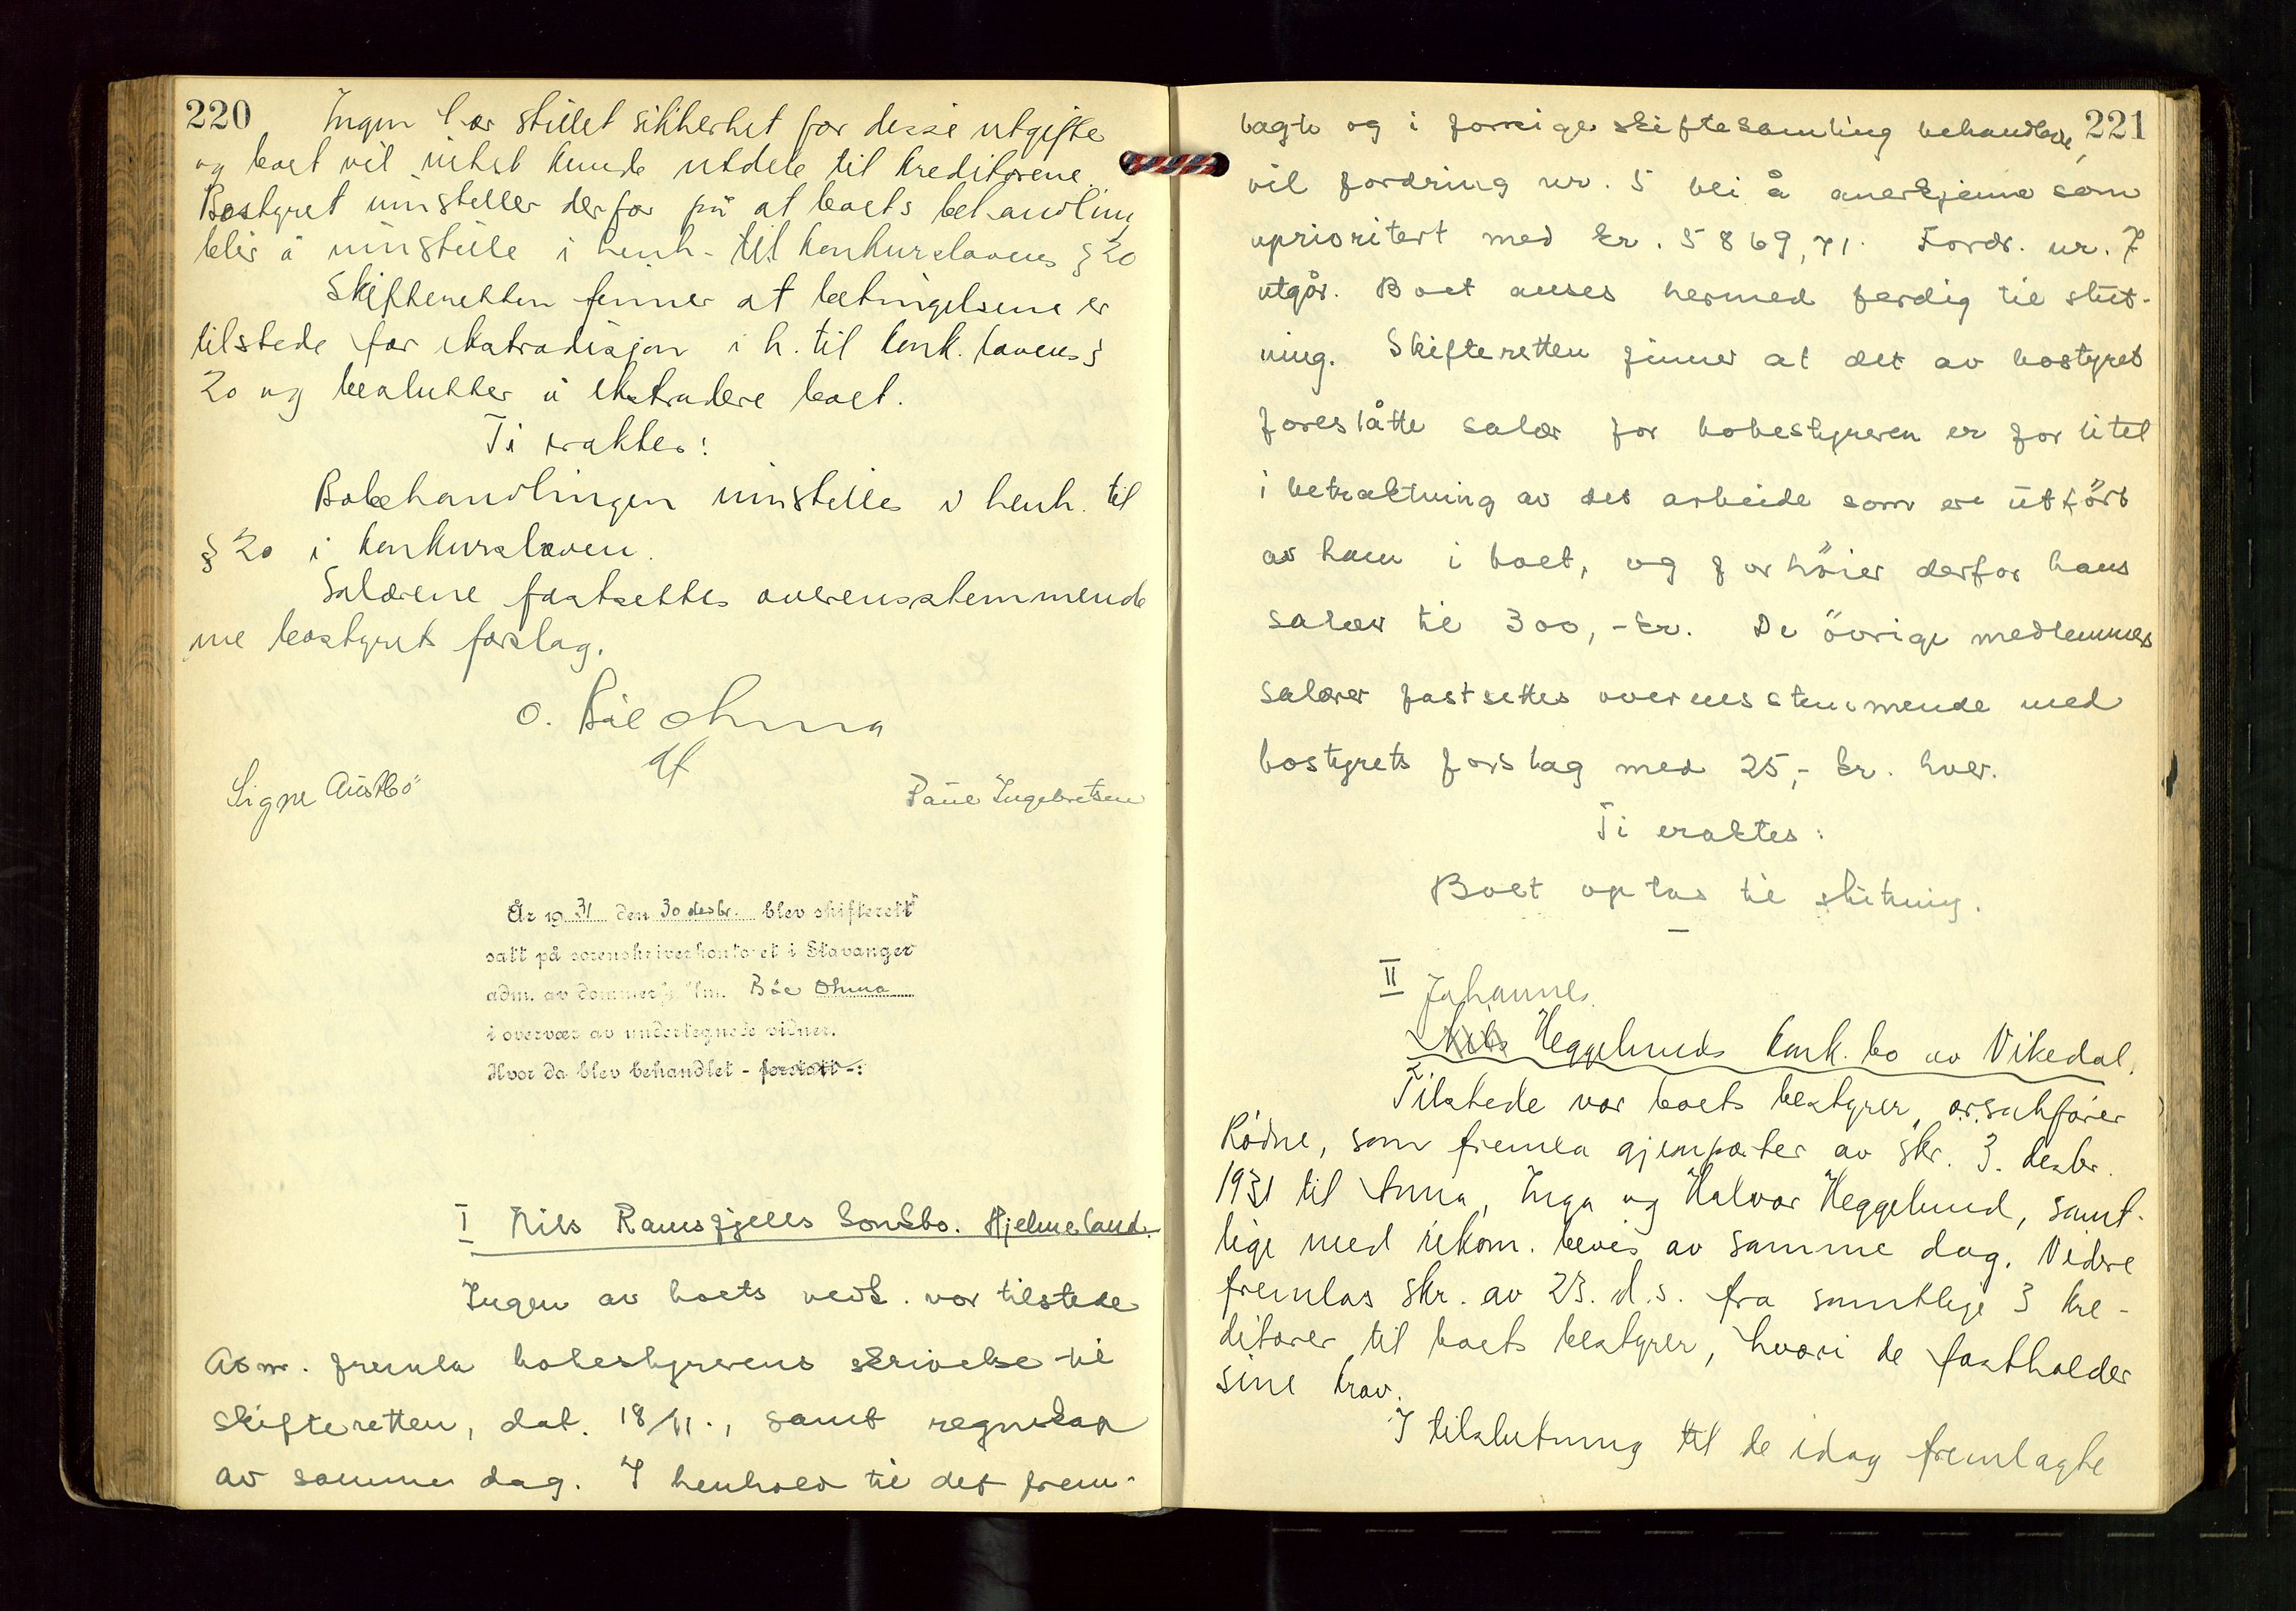 220
Ingen har stillet sikkerhet for disse utgifter
og boet vil intet kunde utdele til kreditorene.
Bostyret innstiller derfor på at boets behandling
blir å innstille i henh. til konkurslovens § 20
Skifteretten finner at betingelsene er
tilstede for ekstradisjon i h. til konk.lovens §
20 og beslutter å ekstradere boet.
Ti eraktes:
Bobehandlingen innstilles i henh. til
§ 20 i konkursloven.
Salærene fastsettes overensstemmende
me bostyrets forslag.
O. Böe Ohma
df
Signe Austbö
Paul Ingebretsen
År 1931 den 30 desbr. blev skifterett
satt på sorenskriverkontoret i Stavanger
adm. av dommerfullm. Böe Ohma
i overvær av undertegnede vidner.
Hvor da blev behandlet - foretatt -:
I Nils Ramsfjells konkbo. Hjelmeland.
Ingen av boets vedk. var tilstede
Adm. fremla bobestyrerens skrivelse til
skifteretten, dat. 18/11., samt regnskap
av samme dag. I henhold til det frem-
221
lagte og i forrige skiftesamling behandlede,
vil fordring nr. 5 bli å anerkjenne som
uprioritert med kr. 5869,71. Fordr. nr. 7
utgår. Boet anses hermed ferdig til slut-
ning. Skifteretten finner at det av bostyret
foreslåtte salær for bobestyreren er for litet
i betraktning av det arbeide som er utfört
av ham i boet, og forhöier derfor hans
salær til 300,- kr. De övrige medlemmers
salærer fastsettes overensstemmende med
bostyrets forslag med 25,- kr. hver.
Ti eraktes:
Boet optas til slutning.
II Johannes
Nils Heggelunds konk.bo av Vikedal.
Tilstede var boets bestyrer, o.r.sakfører
Rödne, som fremla gjenparter av skr. 3. desbr.
1931 til Anna, Inga og Halvor Heggelund, samt-
lige med rekom. bevis av samme dag. Videre
fremlas skr. av 23. d.s. fra samtlige 3 kre-
ditorer til boets bestyrer, hvori de fastholder
sine krav.
I tilslutning til de idag fremlagte